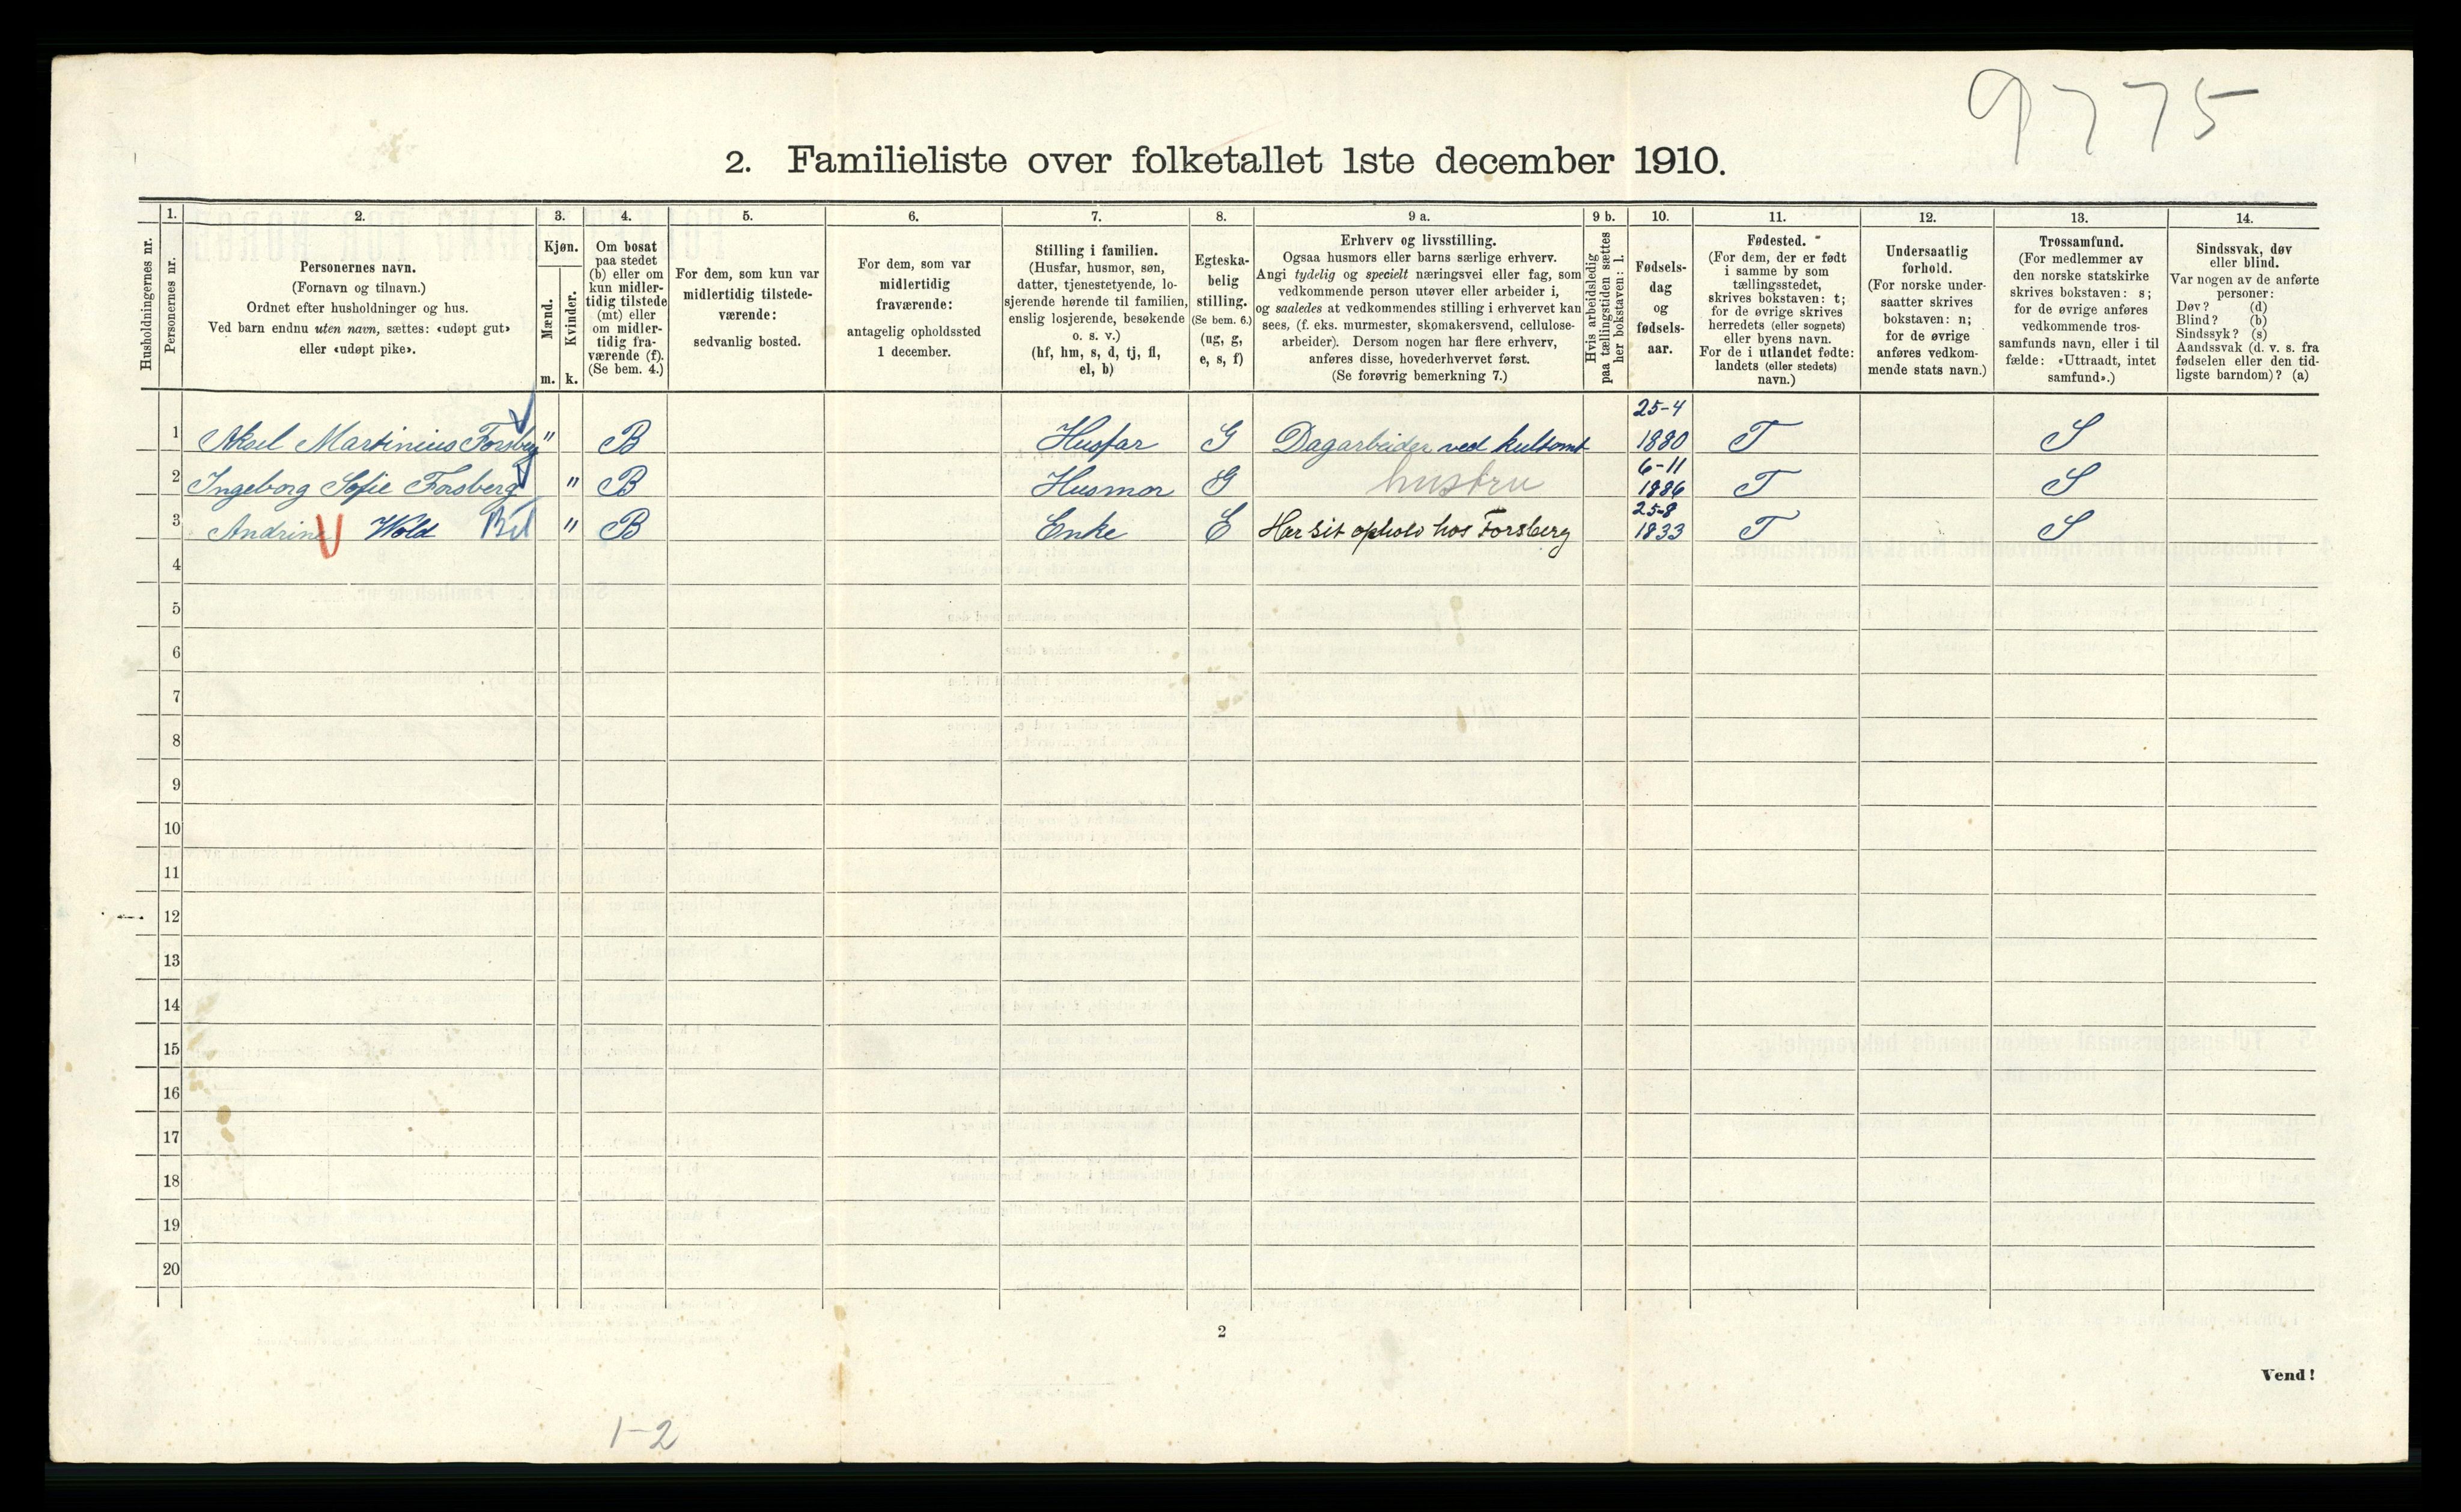 9775
2. Familieliste over folketallet 1ste december 1910.
Husholdningernes nr.
1.
Personernes nr.
2.
Personernes navn.
(Fornavn og tilnavn.)
Ordnet efter husholdninger og hus.
Ved barn endnu uten navn, sættes: «udøpt gut»
eller «udøpt pike».
3.
Kjøn.
Mænd.
Kvinder.
m. k.
4.
Om bosat
paa stedet
(b) eller om
kun midler-
tidig tilstede
(mt) eller
om midler-
tidig fra-
værende (f).
(Se bem. 4.)
5.
For dem, som kun var
midlertidig tilstede-
værende:
sedvanlig bosted.
6.
For dem, som var
midlertidig
fraværende:
antagelig opholdssted
1 december.
7.
Stilling i familien.
(Husfar, husmor, søn,
datter, tjenestetyende, lo-
sjerende hørende til familien,
enslig losjerende, besøkende
o. s. v.)
(hf, hm, s, d, tj, fl,
el, b)
8.
Egteska-
belig
stilling.
(Se bem. 6.)
(ug, g,
e, s, f)
9 a.
Erhverv og livsstilling.
Ogsaa husmors eller barns særlige erhverv.
Angi tydelig og specielt næringsvei eller fag, som
vedkommende person utøver eller arbeider i,
og saaledes at vedkommendes stilling i erhvervet kan
sees, (f. eks. murmester, skomakersvend, cellulose-
arbeider). Dersom nogen har flere erhverv,
anføres disse, hovederhvervet først.
(Se forøvrig bemerkning 7.)
9 b.
Hvis arbeidsledig
paa tællingstiden sættes
her bokstaven: l.
10.
Fødsels-
dag
og
fødsels-
aar.
11.
Fødested.
(For dem, der er født
i samme by som
tællingsstedet,
skrives bokstaven: t;
for de øvrige skrives
herredets (eller sognets)
eller byens navn.
For de i utlandet fødte:
landets (eller stedets)
navn.)
12.
Undersaatlig
forhold.
(For norske under-
saatter skrives
bokstaven: n;
for de øvrige
anføres vedkom-
mende stats navn.)
13.
Trossamfund.
(For medlemmer av
den norske statskirke
skrives bokstaven: s;
for de øvrige anføres
vedkommende tros-
samfunds navn, eller i til
fælde: «Uttraadt, intet
samfund».)
14.
Sindssvak, døv
eller blind.
Var nogen av de anførte
personer:
Døv? (d)
Blind? (b)
Sindssyk? (s)
Aandssvak (d. v. s. fra
fødselen eller den tid-
ligste barndom)? (a)
1 Aksel Martinius Forsberg " B Husfar G Dagarbeider ved kultomt 25-4 1880 T S
2 Ingeborg Sofie Forsberg " B Husmor G hustru 6-11 1886 T S
3 Andrine Wold " B Enke E Har sit ophold hos Forsberg 25-8 1833 T S
4
5
6
7
8
9
10
11
12
13
14
15
16
17
18
19
20
2
Vend!
1-2